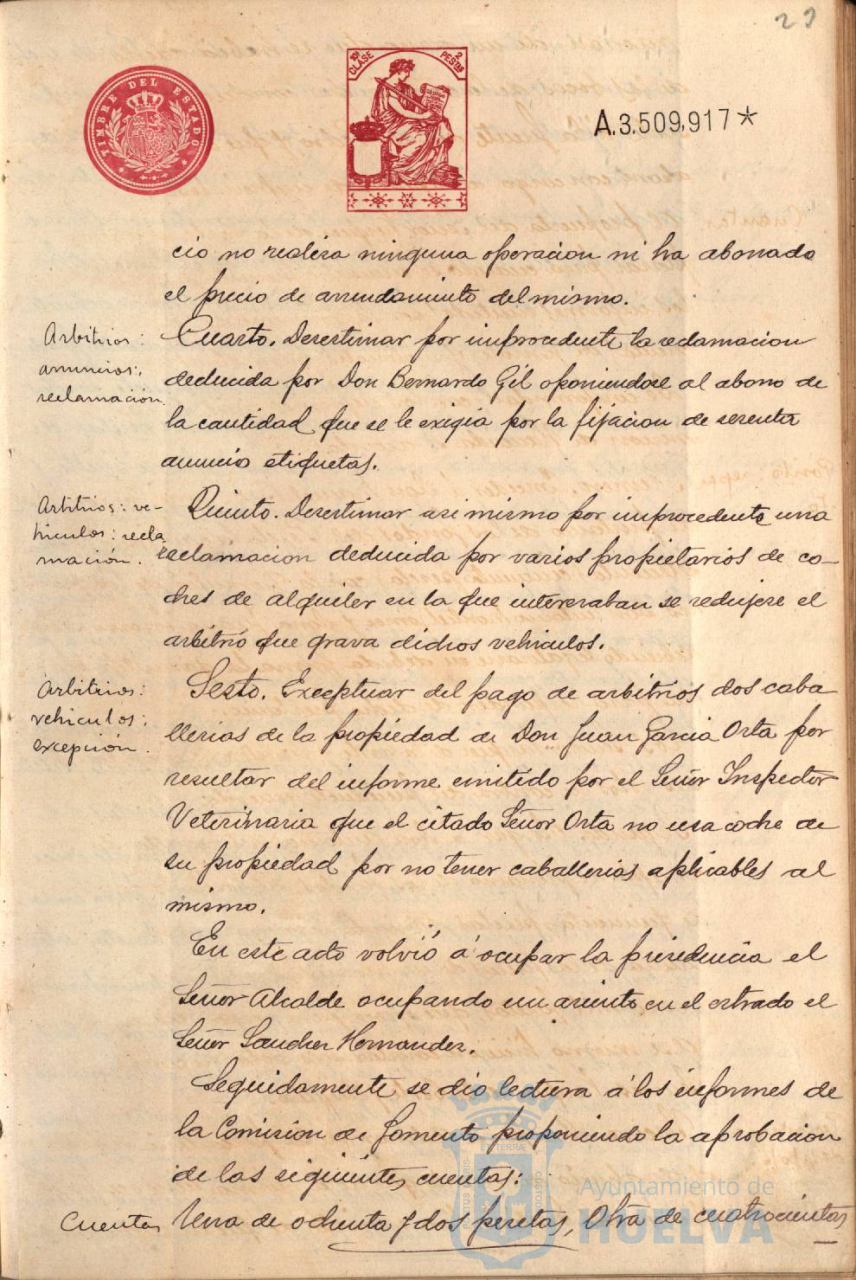 29
TIMBRE DEL ESTADO
10ª CLASE 2 PESETAS
A.3.509,917*
cio no realiza ninguna operacion ni ha abonado
el precio de arrendamiento del mismo.
Arbitrios:
anuncios:
reclamación.
Cuarto. Desestimar por improcedente la reclamacion
deducida por Don Bernardo Gil oponiendose al abono de
la cantidad que se le exigia por la fijacion de sesenta
anuncio etiquetas.
Arbitrios: ve-
hiculos: recla
mación.
Quinto. Desestimar asi mismo por improcedente una
reclamacion deducida por varios propietarios de co-
ches de alquiler en la que interesaban se redujese el
arbitrio que grava dichos vehiculos.
Arbitrios:
vehiculos:
excepción.
Sesto. Exceptuar del pago de arbitrios dos caba
llerias de la propiedad de Don Juan Garcia Orta por
resultar del informe emitido por el Señor Inspector
Veterinaria que el citado Señor Orta no usa coche de
su propiedad por no tener caballerias aplicables al
mismo.
En este acto volvió á ocupar la presidencia el
Señor Alcalde ocupando un asiento en el estrado el
Señor Sanchez Hernandez.
Seguidamente se dio lectura á los informes de
la Comision de Fomento proponiendo la aprobacion
de las siguientes cuentas:
Cuentas
Una de ochenta y dos pesetas, Otra de cuatrocientas
Ayuntamiento de
HUELVA